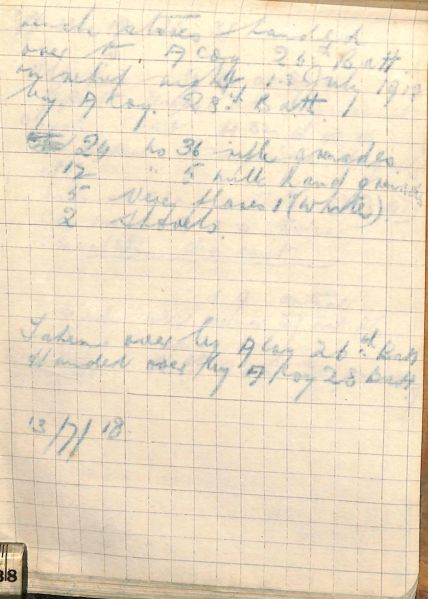 stores handed
over to A Coy 26th Batt
on relief night 13 July 1918
by A Coy. 28th Batt
24 No 36 rifle grenades
12 " 5 mills hand grenades
5 Very flares 1" (white)
2 Shovels
Taken over by A Coy 26th Batt
Handed over by A Coy 28 Batt
13/7/18
38